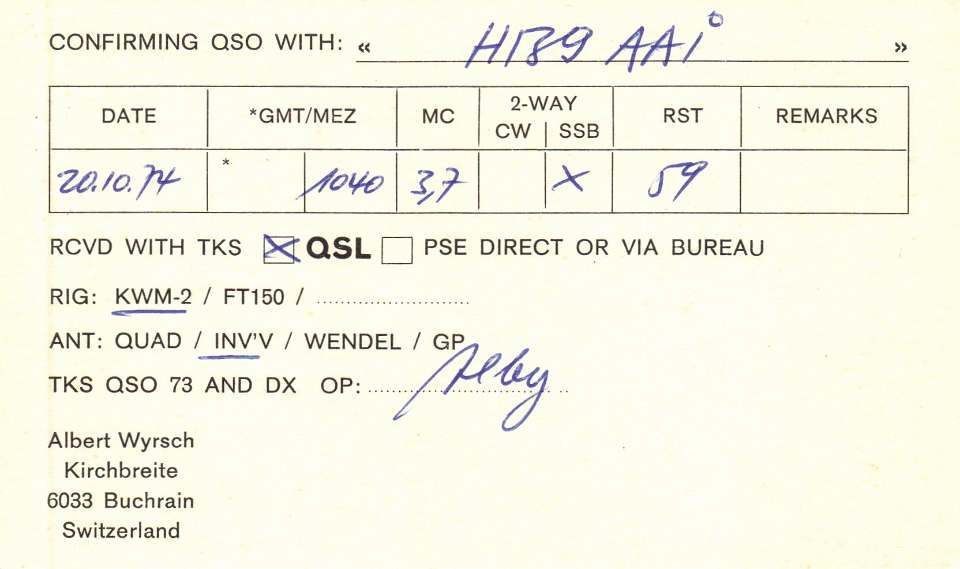 CONFIRMING QSO WITH: « HB9 AAI »
DATE *GMT/MEZ MC 2-WAY CW | SSB RST REMARKS
20.10.74 * 1040 3,7 X 59
RCVD WITH TKS X QSL PSE DIRECT OR VIA BUREAU
RIG: KWM-2 / FT150 / ....................
ANT: QUAD / INV'V / WENDEL / GP
TKS QSO 73 AND DX OP: Alby
Albert Wyrsch
Kirchbreite
6033 Buchrain
Switzerland